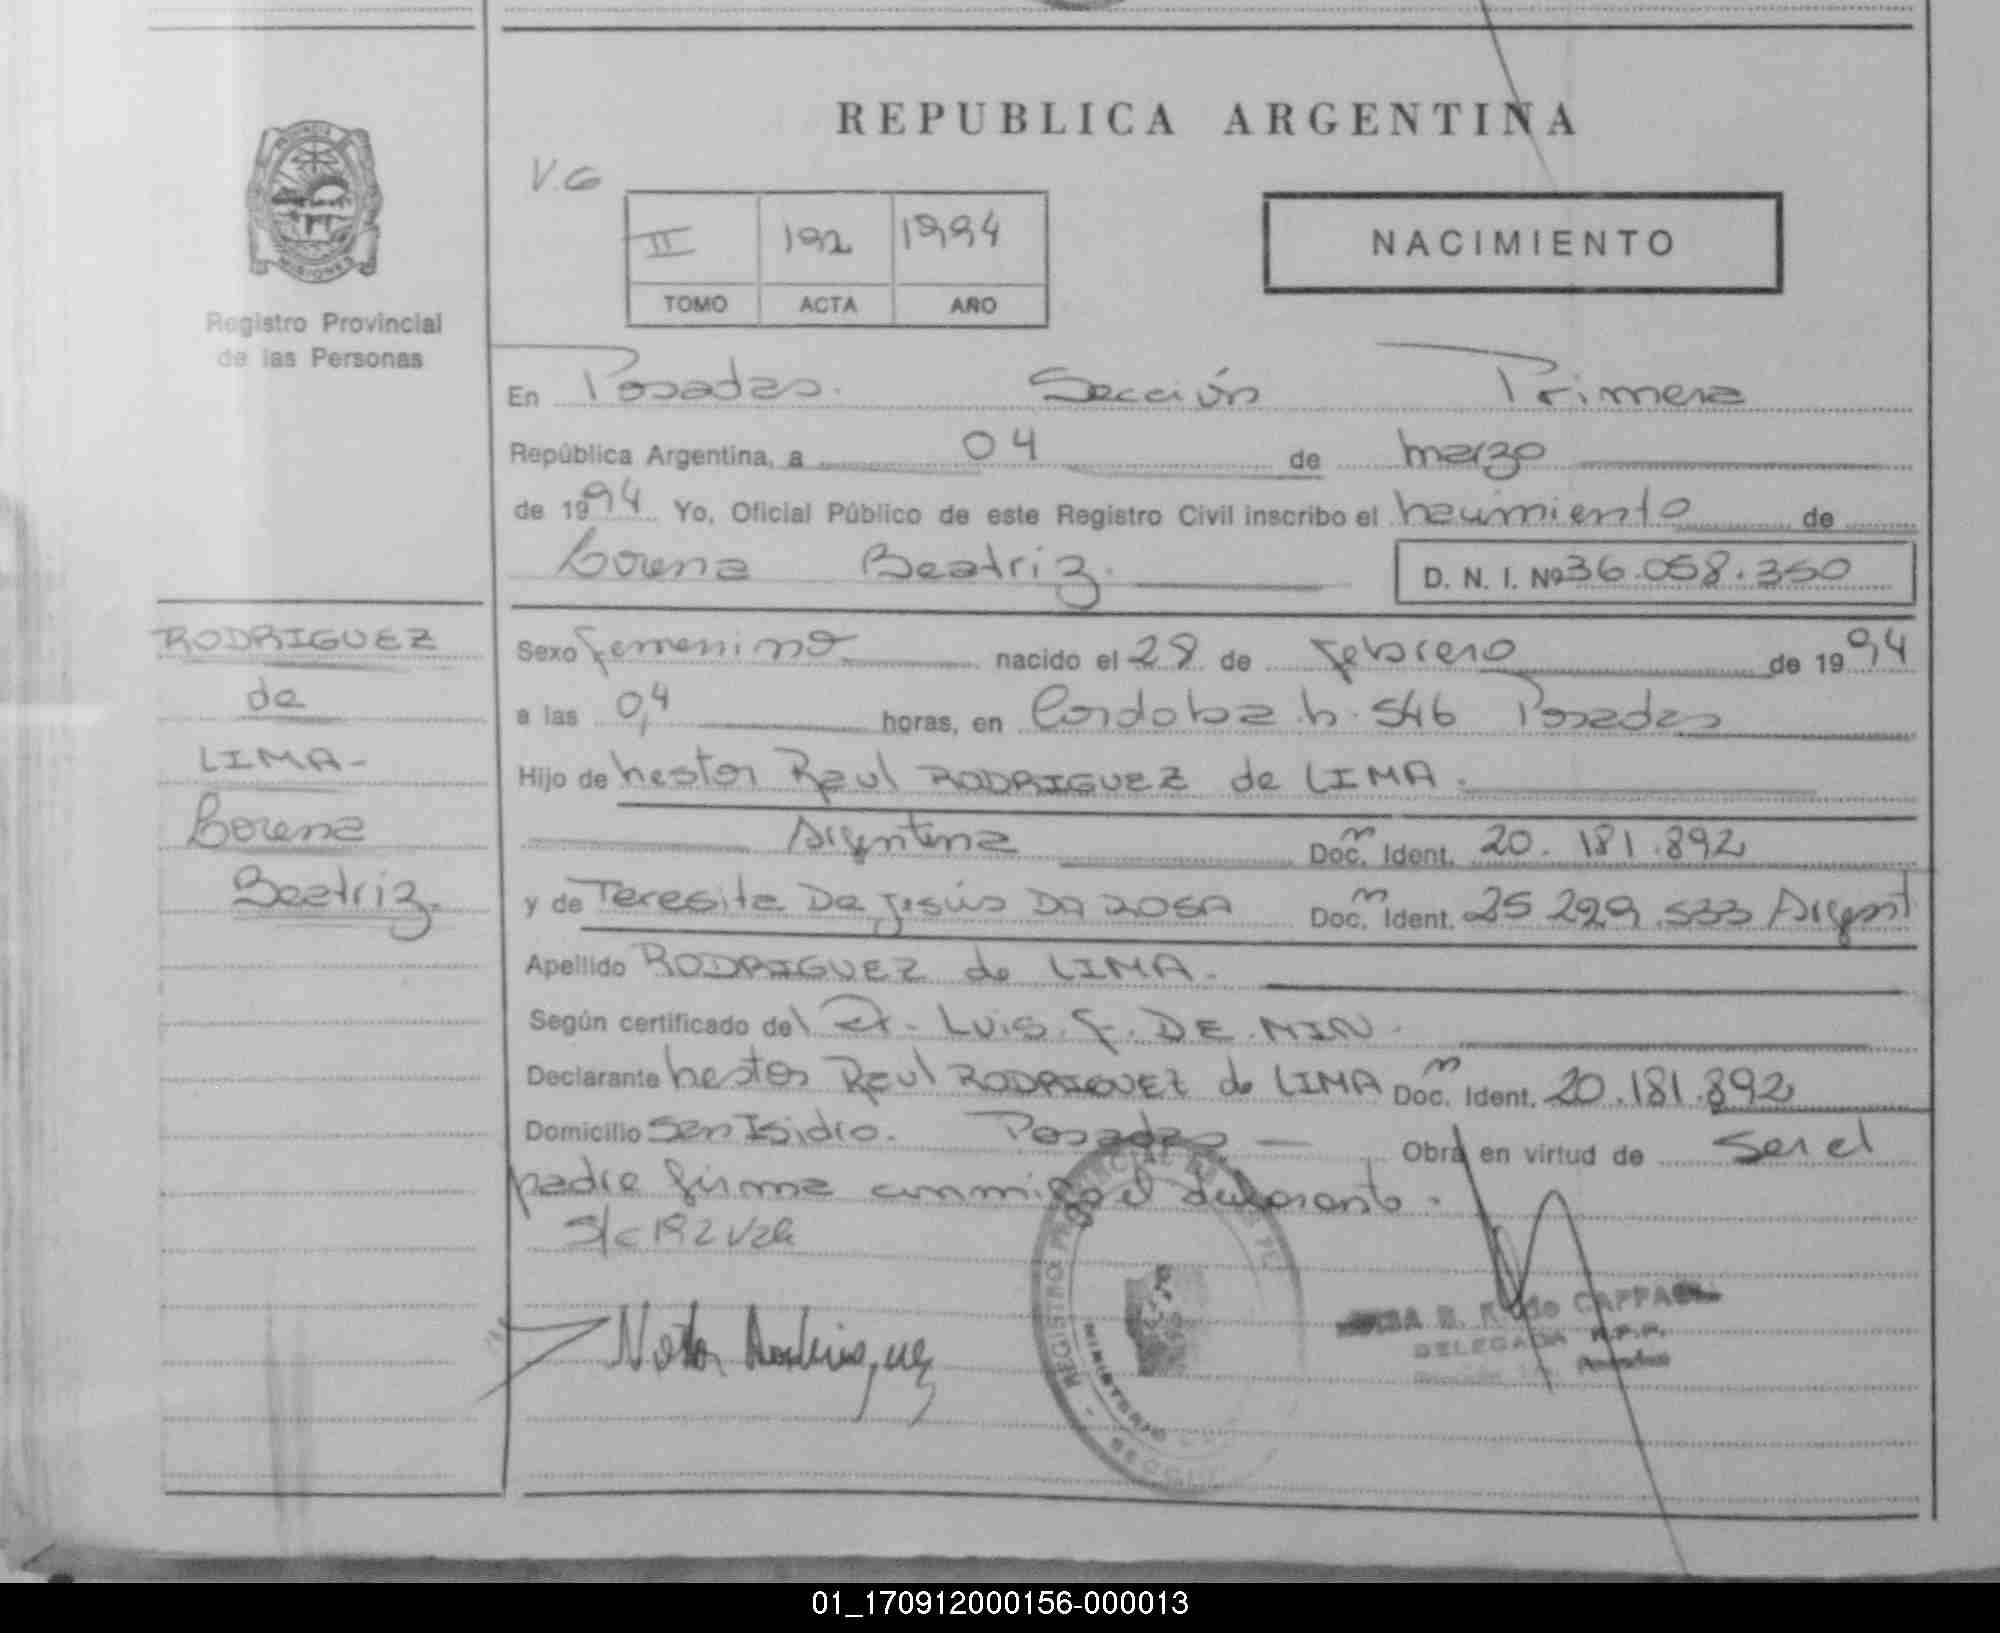 REPUBLICA ARGENTINA
V.G
II 192 1994
TOMO ACTA AÑO
NACIMIENTO
MISIONES
Registro Provincial
de las Personas
En Posadas. Sección Primera
República Argentina, a 04 de marzo
de 1994 Yo, Oficial Público de este Registro Civil inscribo el nacimiento de
Lorena Beatriz. D. N. I. Nº 36.058.350
RODRIGUEZ
de
LIMA-
Lorena
Beatriz.
Sexo femenino nacido el 28 de febrero de 1994
a las 0,4 horas, en Cordoba.n.546 Posadas
Hijo de nestor Raul RODRIGUEZ de LIMA.
Argentina Doc. Ident. 20.181.892
y de Teresita De Jesús DA ROSA Doc. Ident. 25 299.533 Argent
Apellido RODRIGUEZ de LIMA.
Según certificado del Dr. Luis. f. DE. NIN.
Declarante nestor Raul RODRIGUEZ de LIMA Doc. Ident. 20.181.892
Domicilio San Isidro. Posadas — Obra en virtud de ser el
padre firma conmigo el declarante.
S/c 192
REGISTRO
MINISTERIO
DELEGADA R.P.P.
01_170912000156-000013